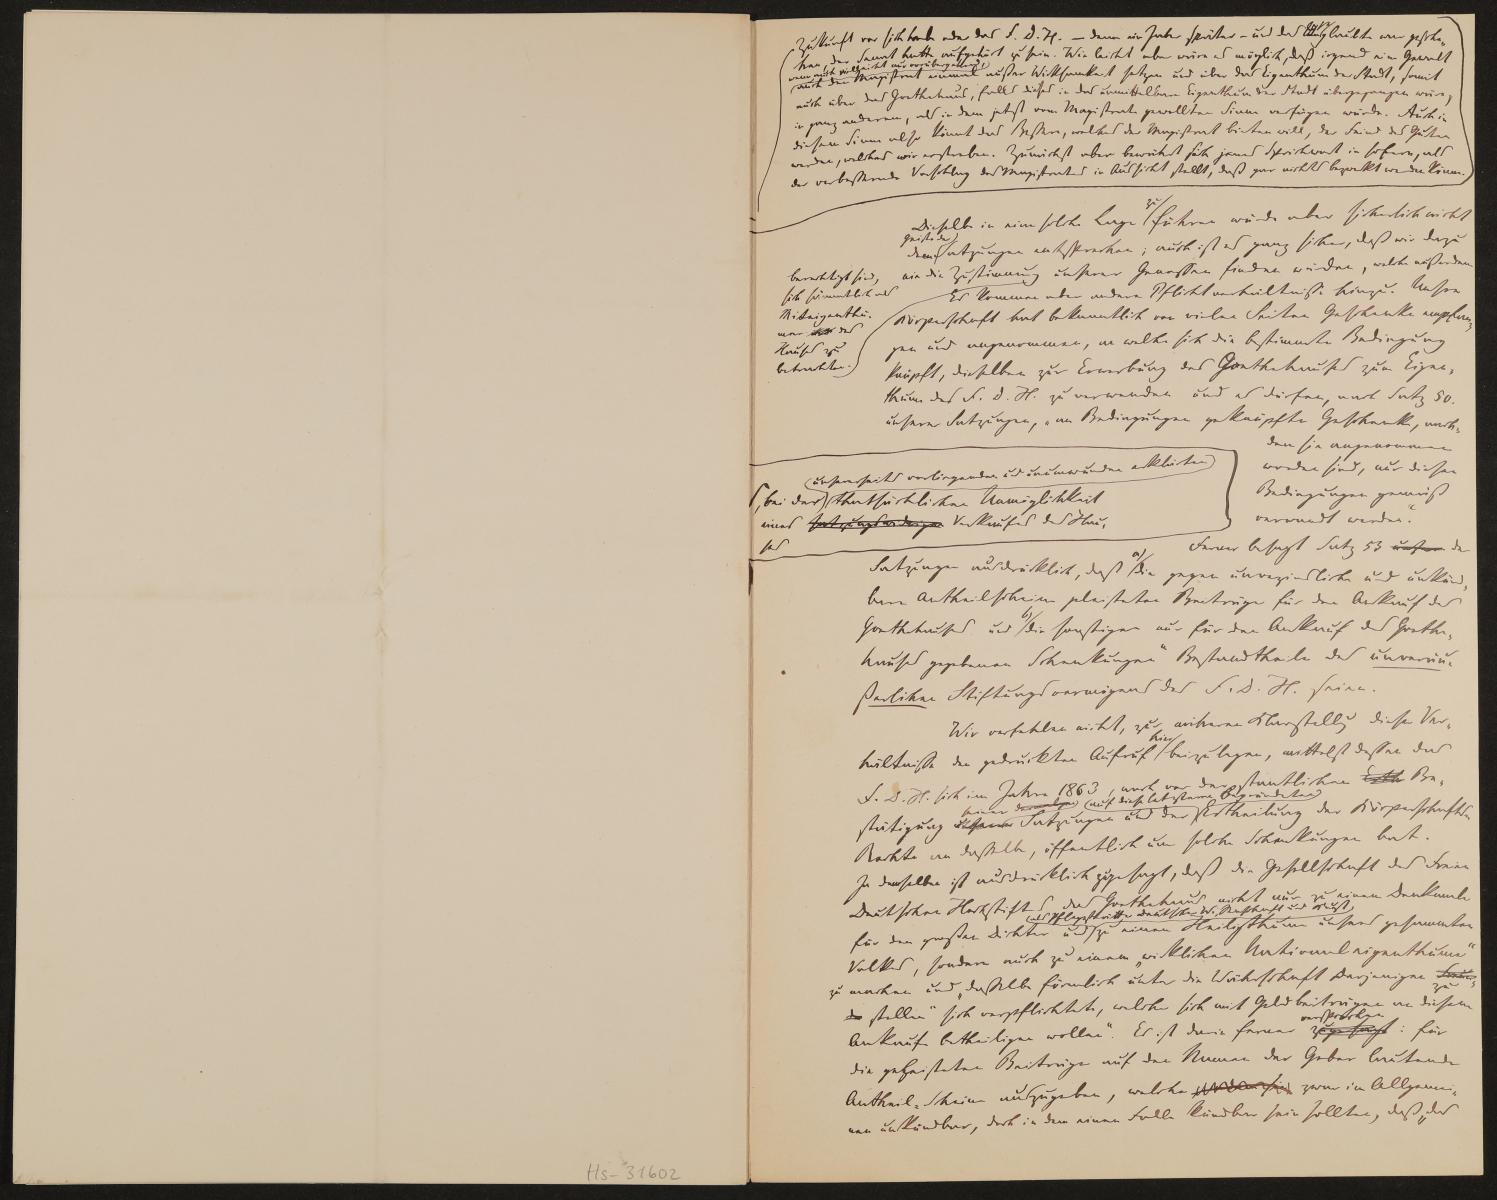 Zukunft vor sich habe oder das F. D. H. — denn ein Jahr später – und das Unglaubliche war gesche-
hen, der Senat hatte aufgehört zu sein. Wie leicht aber wäre es möglich, daß irgend eine Gewalt
wenn auch vielleicht nur vorübergehend
auch den Magistrat einmal außer Wirksamkeit setzen und über das Eigenthum der Stadt, somit
auch über das Goethehaus, falls dieses in das unmittelbare Eigenthum der Stadt übergegangen wäre,
in ganz anderem, als in dem jetzt vom Magistrate gewollten Sinne verfügen würde. Auch in
diesem Sinne also könnte das Bessere, welches der Magistrat bieten will, der Feind des Guten
werden, welches wir erstreben. Zunächst aber bewährt sich jenes Sprichwort in sofern, als
der verbessernde Vorschlag des Magistrates in Aussicht stellt, daß gar nichts bezweckt werden könne.
Dieselbe in eine solche Lage zu führen würde aber sicherlich nicht
dem Geiste der Satzungen entsprechen; auch ist es ganz sicher, daß wir dazu
nie die Zustimmung unserer Genossen finden würden, welche außerdem
berechtigt sind,
sich sämmtlich als
Miteigenthü-
mer des
Hauses zu
betrachten.
Es kommen aber andere Pflichtverhältnisse hinzu. Unsere
Körperschaft hat bekanntlich von vielen Seiten Geschenke empfan-
gen und angenommen, an welche sich die bestimmte Bedingung
knüpft, dieselben zur Erwerbung des Goethehauses zum Eigen-
thum des F. D. H. zu verwenden und es dürfen, nach Satz 50.
unserer Satzungen, „an Bedingungen geknüpfte Geschenke, nach-
dem sie angenommen
worden sind, nur diesen
Bedingungen gemäß
verwendt werden."
unsererseits vorliegenden und unumwunden erklärten
, bei der thatsächlichen Unmöglichkeit
eines satzungswidrigen Verkaufes des Hau-
ses
Ferner besagt Satz 53 unserer der
Satzungen ausdrücklich, daß a) die gegen unverzinsliche und unkünd-
bare Antheilscheine geleisteten Beiträge für den Ankauf des
Goethehauses und b) die sonstigen nur für den Ankauf des Goethe-
hauses gegebenen Schenkungen" Bestandtheile des unveräu-
ßerlichen Stiftungsvermögens des F. D. H. seien.
Wir verfehlen nicht, zur näheren Klarstellung dieser Ver-
hältnisse den gedruckten Aufruf hier beizulegen, mittelst dessen das
F. D. H. sich im Jahre 1863, nach der staatlichen Be-
seiner auf diese letztere begründeten
stätigung unserer Satzungen und der Ertheilung der Körperschafts-
Rechte an dasselbe, öffentlich um solche Schenkungen bat.
In demselben ist ausdrücklich zugesagt, daß die Gesellschaft des Freien
Deutschen Hochstiftes das Goethehaus nicht nur zu einem Denkmale
als Pflegestätte deutscher Wissenschaft und Kunst,
für den großen Dichter und zu einem Heiligthume unseres gesammten
Volkes, sondern auch zu einem „wirklichen Nationaleigenthume"
zu machen und „dasselbe förmlich unter die Wächterschaft Derjenigen zu
stellen" sich verpflichtete, welche sich mit Geldbeiträgen an diesem
Ankaufe betheiligen wollen". Es ist darin ferner versprochen zugesagt: für
die geleisteten Beiträge auf den Namen der Geber lautende
Antheil-Scheine auszugeben, welche zwar im Allgemei-
nen unkündbar, doch in dem einen Falle kündbar sein sollten, daß „das
Hs-31602